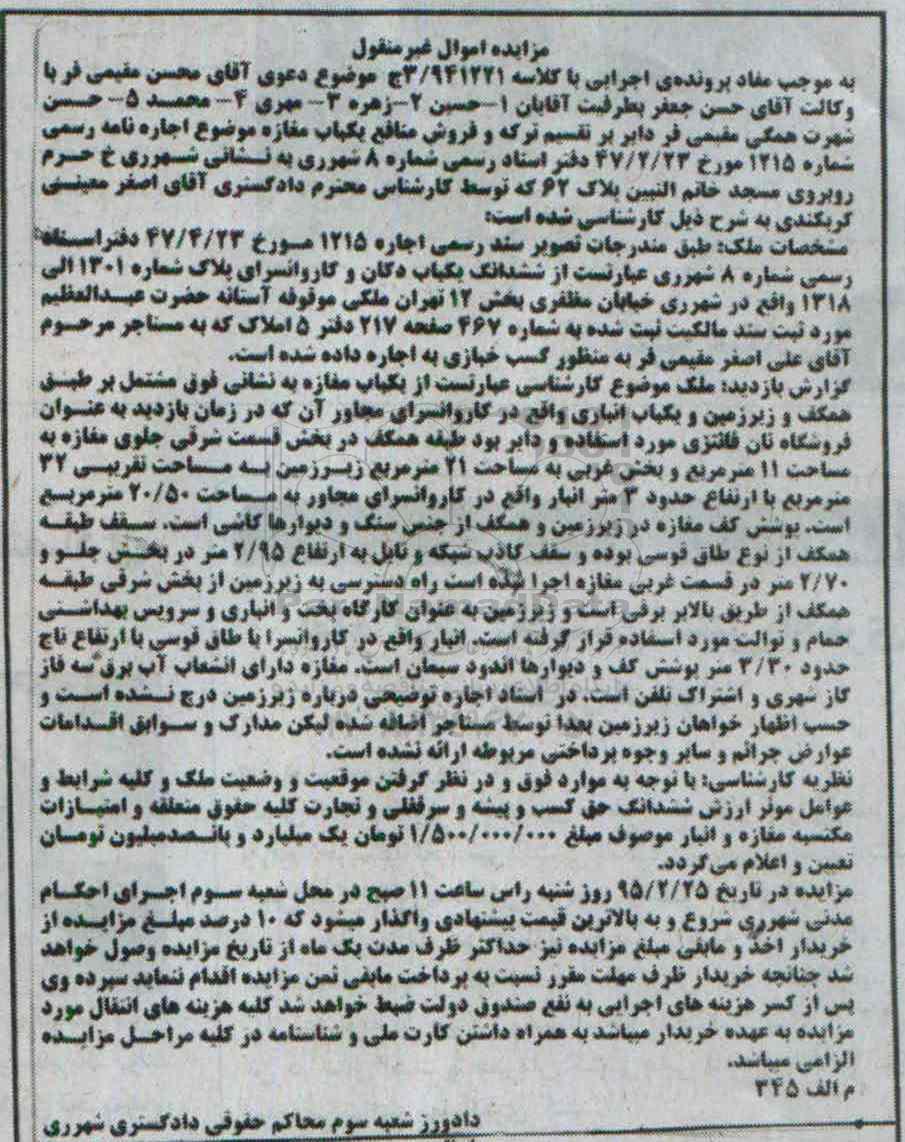 مزایده اموال غیرمنقول
به موجب مفاد پرونده‌ی اجرایی با کلاسه ۳/۹۴۱۲۲۱ج موضوع دعوی آقای محسن مقیمی فر با
وکالت آقای حسن جعفر بطرفیت آقایان ۱-حسین ۲-زهره ۳- مهری ۴- محمد ۵- حسن
شهرت همگی مقیمی فر دایر بر تقسیم ترکه و فروش منافع یکباب مغازه موضوع اجاره نامه رسمی
شماره ۱۲۱۵ مورخ ۴۷/۲/۲۳ دفتر اسناد رسمی شماره ۸ شهرری به نشانی شهرری خ حرم
روبروی مسجد خاتم النبیین پلاک ۶۲ که توسط کارشناس محترم دادگستری آقای اصغر معینی
کریکندی به شرح ذیل کارشناسی شده است:
مشخصات ملک: طبق مندرجات تصویر سند رسمی اجاره ۱۲۱۵ مورخ ۴۷/۴/۲۳ دفتراسناد
رسمی شماره ۸ شهرری عبارتست از ششدانگ یکباب دکان و کاروانسرای پلاک شماره ۱۳۰۱ الی
۱۳۱۸ واقع در شهرری خیابان مظفری بخش ۱۲ تهران ملکی موقوفه آستانه حضرت عبدالعظیم
مورد ثبت سند مالکیت ثبت شده به شماره ۴۶۷ صفحه ۲۱۷ دفتر ۵ املاک که به مستاجر مرحوم
آقای علی اصغر مقیمی فر به منظور کسب خبازی به اجاره داده شده است.
گزارش بازدید: ملک موضوع کارشناسی عبارتست از یکباب مغازه به نشانی فوق مشتمل بر طبق
همکف و زیرزمین و یکباب انباری واقع در کاروانسرای مجاور آن که در زمان بازدید به عنوان
فروشگاه نان فانتزی مورد استفاده و دایر بود طبقه همکف در بخش قسمت شرقی جلوی مغازه به
مساحت ۱۱ مترمربع و بخش غربی به مساحت ۲۱ مترمربع زیرزمین به مساحت تقریبی ۳۲
مترمربع با ارتفاع حدود ۳ متر انبار واقع در کاروانسرای مجاور به مساحت ۲۰/۵۰ مترمربع
است. پوشش کف مغازه در زیرزمین و همکف از جنس سنگ و دیوارها کاشی است. سقف طبقه
همکف از نوع طاق قوسی بوده و سقف کاذب شبکه و تایل به ارتفاع ۲/۹۵ متر در بخش جلو و
۲/۷۰ متر در قسمت غربی مغازه اجرا شده است راه دسترسی به زیرزمین از بخش شرقی طبقه
همکف از طریق بالابر برقی است و زیرزمین به عنوان کارگاه پخت و انباری و سرویس بهداشتی
حمام و توالت مورد استفاده قرار گرفته است. انبار واقع در کاروانسرا با طاق قوسی با ارتفاع تاج
حدود ۳/۳۰ متر پوشش کف و دیوارها اندود سیمان است. مغازه دارای انشعاب آب برق سه فاز
گاز شهری و اشتراک تلفن است. در اسناد اجاره توضیحی درباره زیرزمین درج نشده است و
حسب اظهار خواهان زیرزمین بعدا توسط مستاجر اضافه شده لیکن مدارک و سوابق اقدامات
عوارض جرائم و سایر وجوه پرداختی مربوطه ارائه نشده است.
نظریه کارشناسی: با توجه به موارد فوق و در نظر گرفتن موقعیت و وضعیت ملک و کلیه شرایط و
عوامل موثر ارزش ششدانگ حق کسب و پیشه و سرقفلی و تجارت کلیه حقوق متعلقه و امتیازات
مکتسبه مغازه و انبار موصوف مبلغ ۱/۵۰۰/۰۰۰/۰۰۰ تومان یک میلیارد و پانصدمیلیون تومان
تعیین و اعلام می‌گردد.
مزایده در تاریخ ۹۵/۲/۲۵ روز شنبه راس ساعت ۱۱ صبح در محل شعبه سوم اجرای احکام
مدنی شهرری شروع و به بالاترین قیمت پیشنهادی واگذار میشود که ۱۰ درصد مبلغ مزایده از
خریدار اخذ و مابقی مبلغ مزایده نیز حداکثر ظرف مدت یک ماه از تاریخ مزایده وصول خواهد
شد چنانچه خریدار ظرف مهلت مقرر نسبت به پرداخت مابقی ثمن مزایده اقدام ننماید سپرده وی
پس از کسر هزینه های اجرایی به نفع صندوق دولت ضبط خواهد شد کلیه هزینه های انتقال مورد
مزایده به عهده خریدار میباشد به همراه داشتن کارت ملی و شناسنامه در کلیه مراحل مزایده
الزامی میباشد.
م الف ۳۴۵
دادورز شعبه سوم محاکم حقوقی دادگستری شهرری